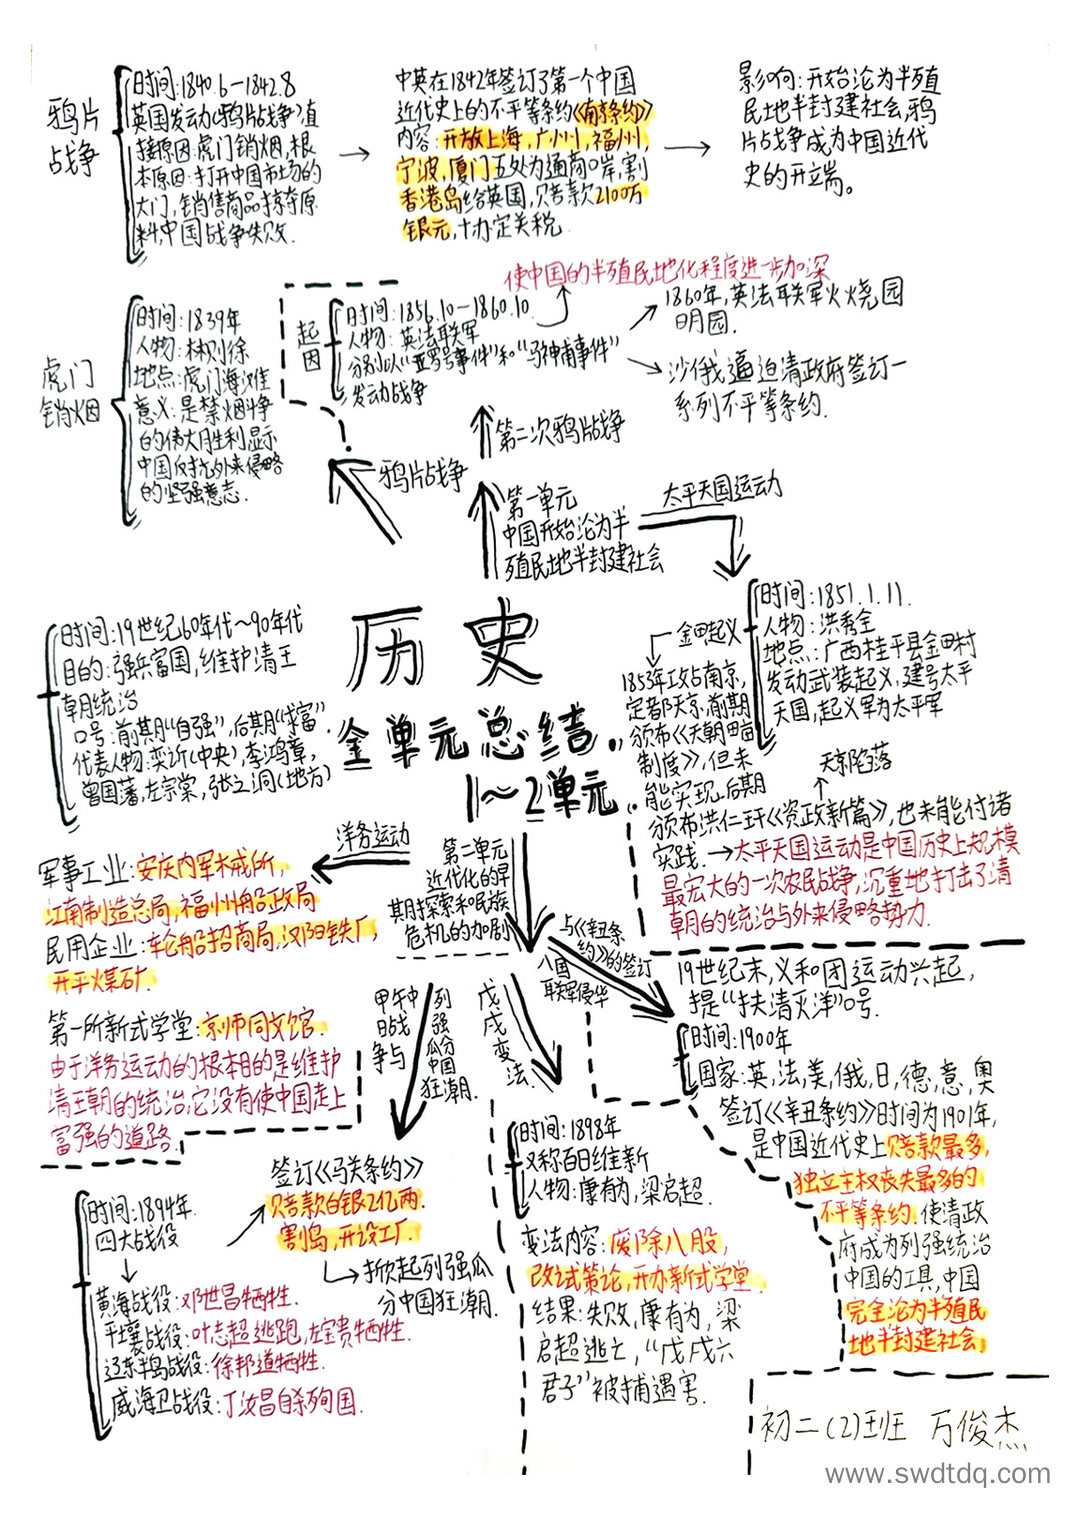 鸦片
战争
时间:1840.6—1842.8
英国发动《鸦片战争》,直
接原因:虎门销烟,根
本原因:打开中国市场的
大门,销售商品掠夺原
料,中国战争失败.
中英在1842年签订了第一个中国
近代史上的不平等条约《南京条约》
内容:开放上海,广州,福州,
宁波,厦门五处为通商口岸,割
香港岛给英国,赔款2100万
银元,协定关税
影响:开始沦为半殖
民地半封建社会,鸦
片战争成为中国近代
史的开端。
虎门
销烟
时间:1839年
人物:林则徐
地点:虎门海滩
意义:是禁烟斗争
的伟大胜利显示
中国反抗外来侵略
的坚强意志.
起因
时间:1856.10—1860.10.
人物:英法联军
分别以“亚罗号事件”和“马神甫事件”
发动战争
使中国的半殖民地化程度进一步加深
1860年,英法联军火烧园
明园.
沙俄逼迫清政府签订一
系列不平等条约.
第二次鸦片战争
鸦片战争
第一单元
中国开始沦为半
殖民地半封建社会
太平天国运动
时间:1851.1.11.
人物:洪秀全
地点:广西桂平县金田村
发动武装起义,建号太平
天国,起义军为太平军
金田起义
1853年攻占南京,
定都天京,前期
颁布《天朝田亩
制度》,但未
能实现.后期
颁布洪仁玕《资政新篇》,也未能付诸
实践.→太平天国运动是中国历史上规模
最宏大的一次农民战争,沉重地打击了清
朝的统治与外来侵略势力.
天京陷落
历史
全单元总结.
1~2单元
时间:19世纪60年代~90年代
目的:强兵富国,维护清王
朝统治
口号:前期“自强”,后期“求富”.
代表人物:奕䜣(中央),李鸿章,
曾国藩,左宗棠,张之洞(地方)
洋务运动
军事工业:安庆内军械所,
江南制造总局,福州船政局
民用企业:轮船招商局,汉阳铁厂,
开平煤矿.
第一所新式学堂:京师同文馆.
由于洋务运动的根本目的是维护
清王朝的统治,它没有使中国走上
富强的道路.
第二单元
近代化的早
期探索和民族
危机的加剧
甲午中
日战
争与
列强瓜分中国狂潮.
戊戌变法.
八国
联军侵华
与《辛丑条
约》的签订
19世纪末,义和团运动兴起,
提“扶清灭洋”口号.
时间:1900年
国家:英,法,美,俄,日,德,意,奥
签订《辛丑条约》时间为1901年,
是中国近代史上赔款最多,
独立主权丧失最多的
不平等条约.使清政
府成为列强统治
中国的工具,中国
完全沦为半殖民
地半封建社会,
时间:1894年.
四大战役
黄海战役:邓世昌牺牲.
平壤战役:叶志超逃跑,左宝贵牺牲.
辽东半岛战役:徐邦道牺牲.
威海卫战役:丁汝昌自杀殉国.
签订《马关条约》
赔款白银2亿两.
割岛,开设工厂.
掀起列强瓜
分中国狂潮.
时间:1898年
又称百日维新
人物:康有为,梁启超.
变法内容:废除八股,
改试策论,开办新式学堂.
结果:失败,康有为,梁
启超逃亡,“戊戌六
君子”被捕遇害.
初二(2)班 万俊杰
www.swdtdq.com